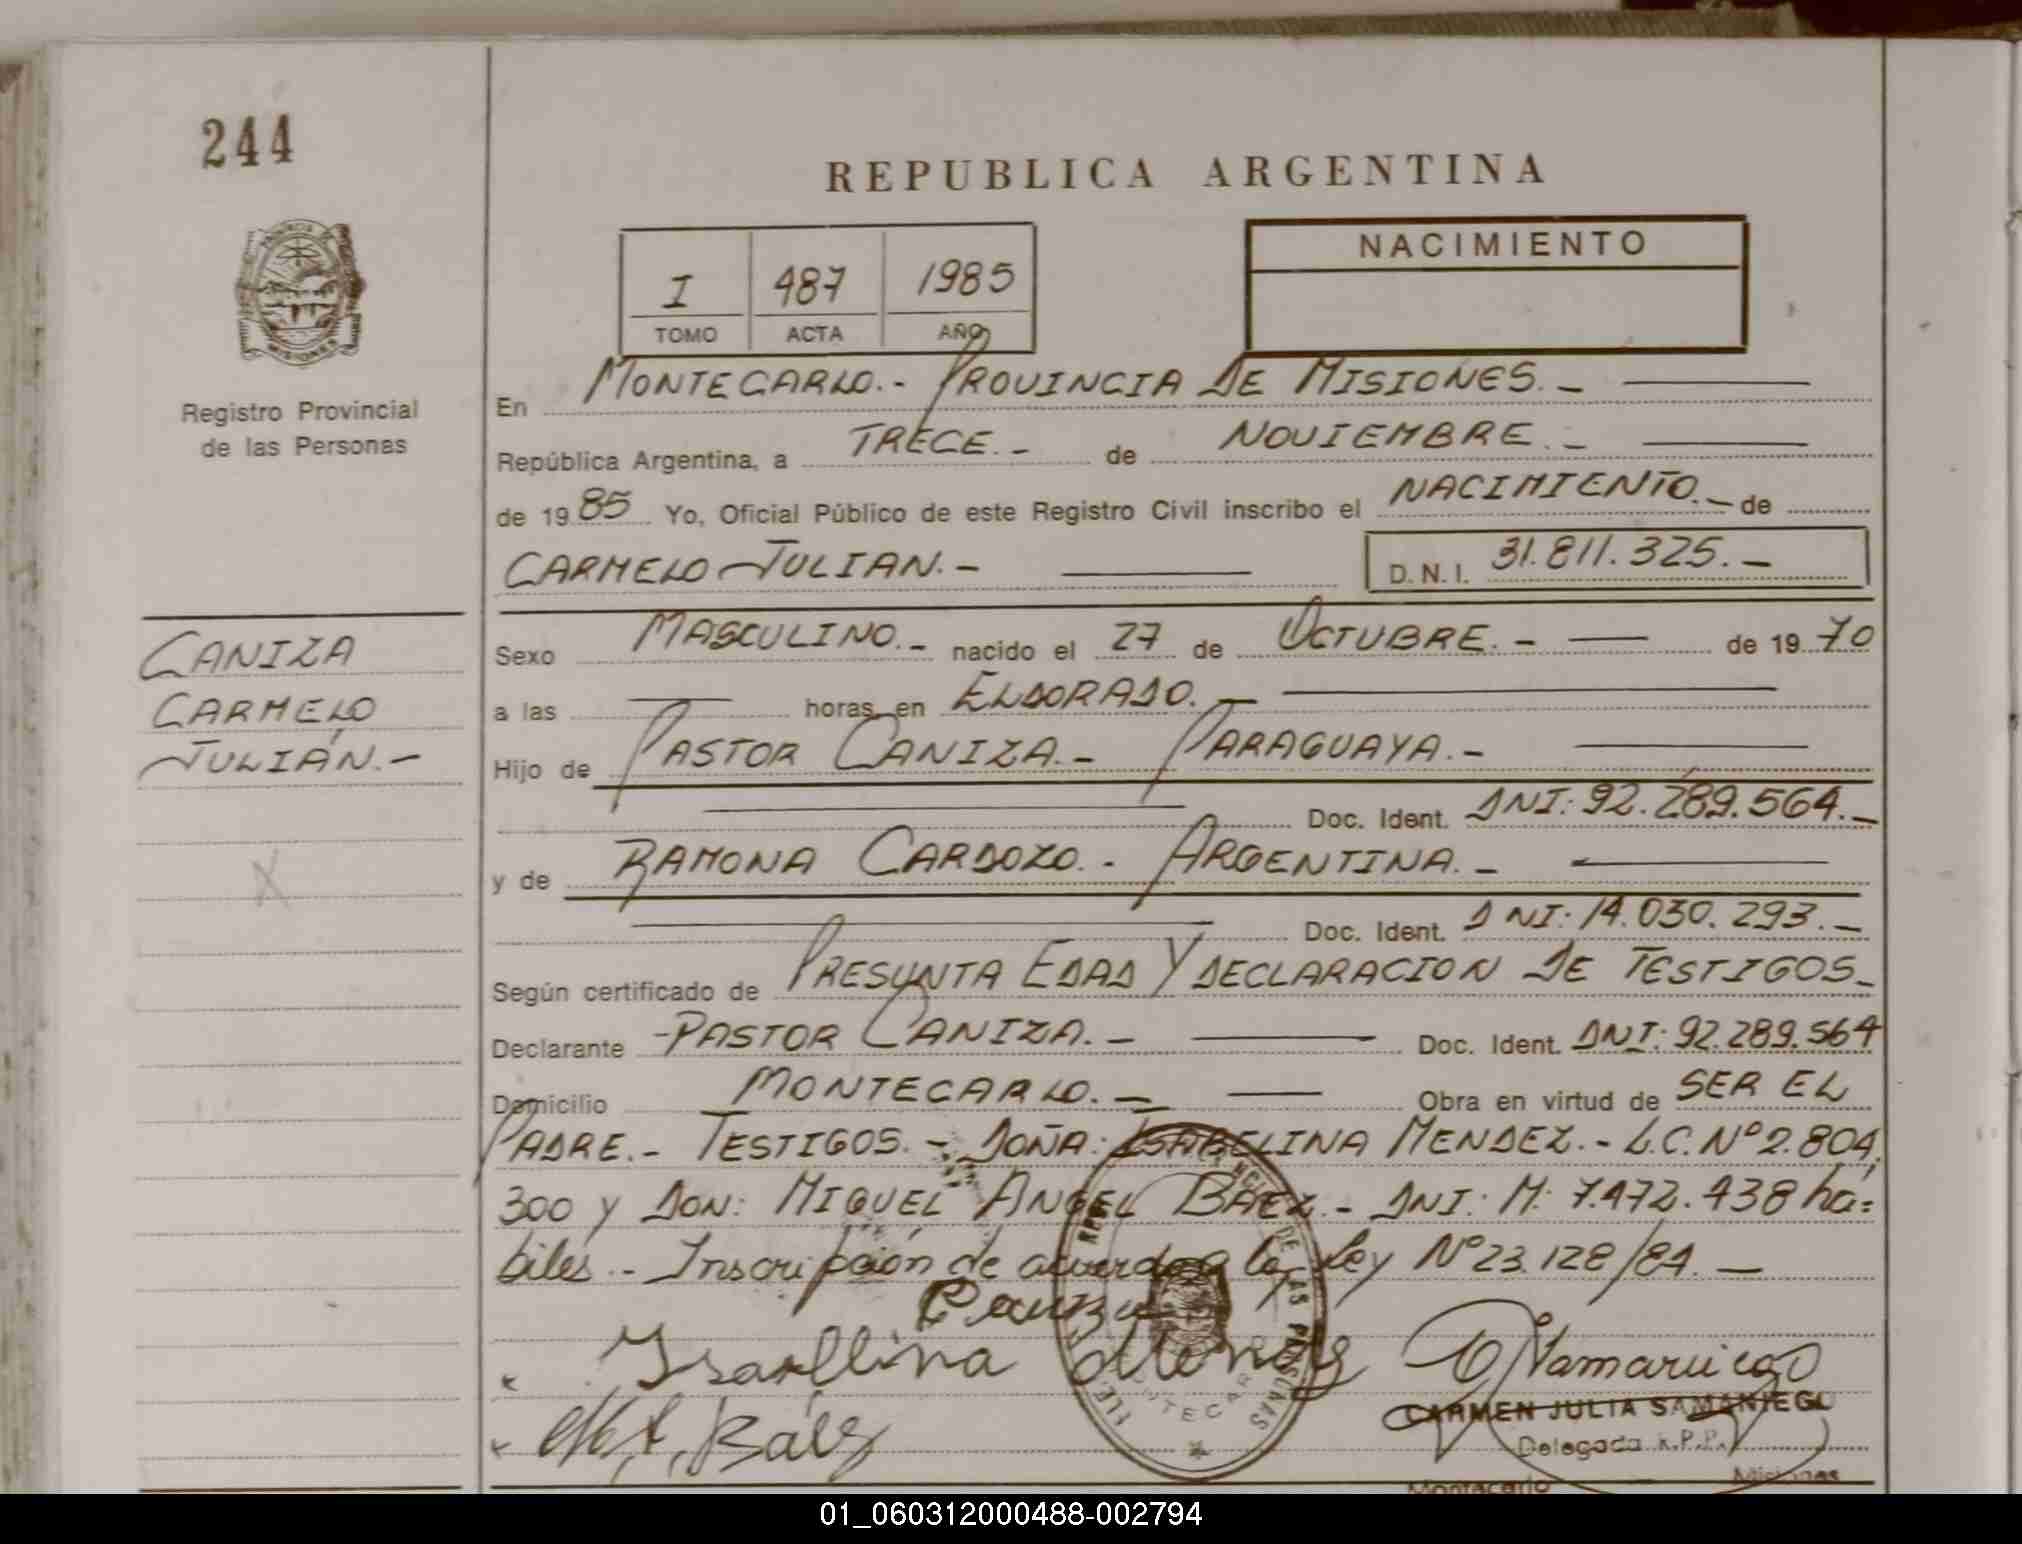 244
REPUBLICA ARGENTINA
PROVINCIA DE
MISIONES
Registro Provincial
de las Personas
I 487 1985
TOMO ACTA AÑO
NACIMIENTO
En MONTECARLO.- PROVINCIA DE MISIONES.-
República Argentina, a TRECE.- de NOVIEMBRE.-
de 1985 Yo, Oficial Público de este Registro Civil inscribo el NACIMIENTO.- de
CARMELO JULIAN.- D.N.I. 31.811.325.-
CANIZA
CARMELO
JULIÁN.-
Sexo MASCULINO.- nacido el 27 de OCTUBRE.- de 1970
a las horas en ELDORADO.-
Hijo de PASTOR CANIZA.- PARAGUAYA.-
Doc. Ident. DNI: 92.289.564.-
y de RAMONA CARDOZO.- ARGENTINA.-
Doc. Ident. DNI: 14.030.293.-
Según certificado de PRESUNTA EDAD Y DECLARACION DE TESTIGOS-
Declarante -PASTOR CANIZA.- Doc. Ident. DNI: 92.289.564
Domicilio MONTECARLO.- Obra en virtud de SER EL
PADRE.- TESTIGOS.- DOÑA: ISABELINA MENDEZ.- L.C.Nº 2.804.
300 y DON: MIGUEL ANGEL BAEZ.- DNI: M: 7.472.438 há=
biles.- Inscripción de acuerdo a la Ley Nº 23.128/84.-
CARMEN JULIA SAMANIEGO
Delegada R.P.P.
Montecarlo Misiones
01_060312000488-002794